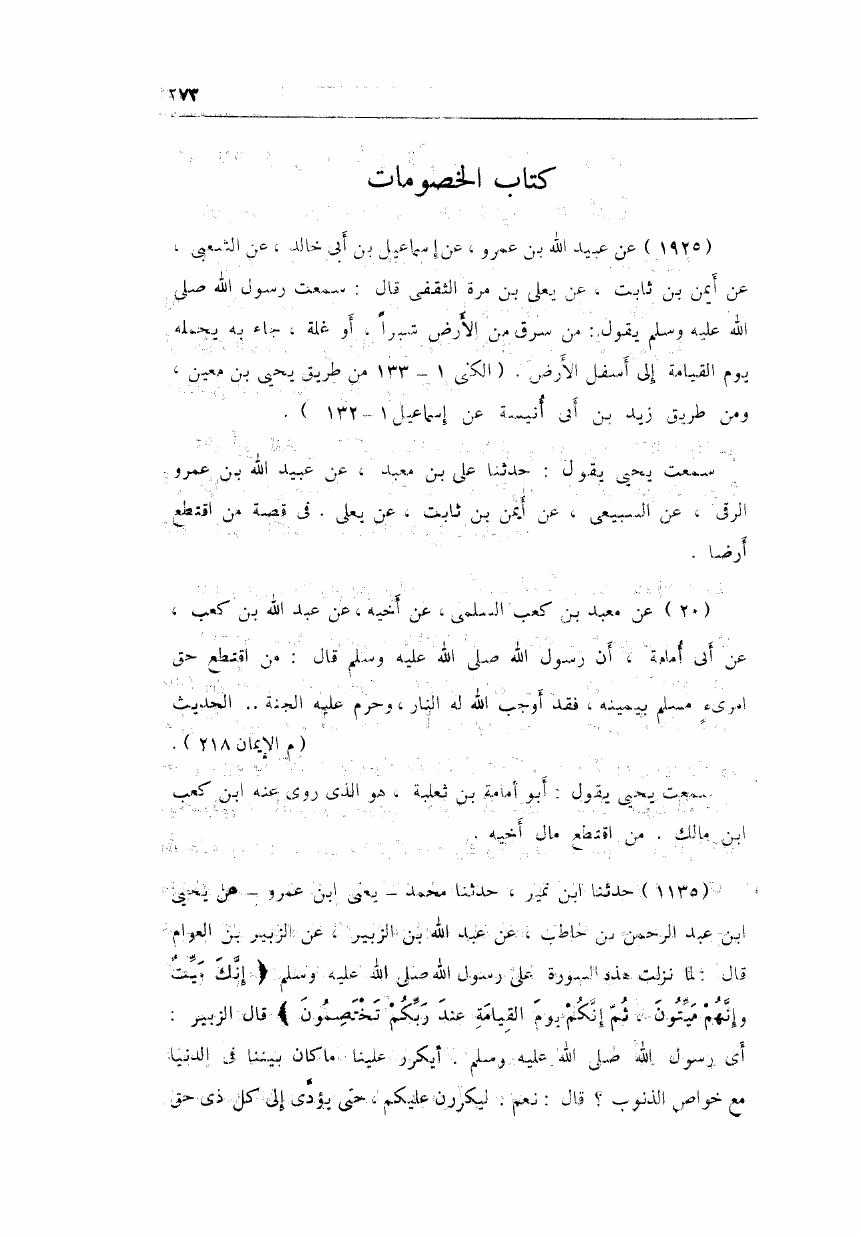 ٢٧٣
كتاب الخصومات
( ١٩٢٥ ) عن عبيد الله بن عمرو ، عن إسماعيل بن أبى خالد ، عن الشعبى ،
عن أيمن بن ثابت ، عن يعلى بن مرة الثقفى قال : سمعت رسول الله صلى
الله عليه وسلم يقول : من سرق من الأرض شبراً ، أو غلة ، جاء به يحمله
يوم القيامة إلى أسفل الأرض . ( الكنى ١ – ١٣٣ من طريق يحيى بن معين ،
ومن طريق زيد بن أبى أنيسة عن إسماعيل ١ – ١٣٢ ) .
سمعت يحيى يقول : حدثنا على بن معبد ، عن عبيد الله بن عمرو
الرقى ، عن السبيعى ، عن أيمن بن ثابت ، عن يعلى . فى قصة من اقتطع
أرضا .
( ٢٠ ) عن معبد بن كعب السلمى ، عن أخيه ، عن عبد الله بن كعب ،
عن أبى أمامة ، أن رسول الله صلى الله عليه وسلم قال : من اقتطع حق
امرىء مسلم بيمينه ، فقد أوجب الله له النار ، وحرم عليه الجنة .. الحديث
( م الإيمان ٢١٨ ) .
سمعت يحيى يقول : أبو أمامة بن ثعلبة ، هو الذى روى عنه ابن كعب
ابن مالك . من اقتطع مال أخيه .
( ١١٣٥ ) حدثنا ابن نمير ، حدثنا محمد – يعنى ابن عمرو – عن يحيى
ابن عبد الرحمن بن حاطب ، عن عبد الله بن الزبير ، عن الزبير بن العوام
قال : لما نزلت هذه السورة على رسول الله صلى الله عليه وسلم ﴿ إِنَّكَ مَيِّتٌ
وإنَّهُمْ مَيِّتُونَ ، ثُمَّ إِنَّكُمْ يومَ القيامَةِ عندَ رَبِّكُمْ تَخْتَصِمُونَ ﴾ قال الزبير :
أى رسول الله صلى الله عليه وسلم . أيكرر علينا ما كان بيننا فى الدنيا
مع خواص الذنوب ؟ قال : نعم : ليكررن عليكم ، حتى يؤدَّى إلى كل ذى حق